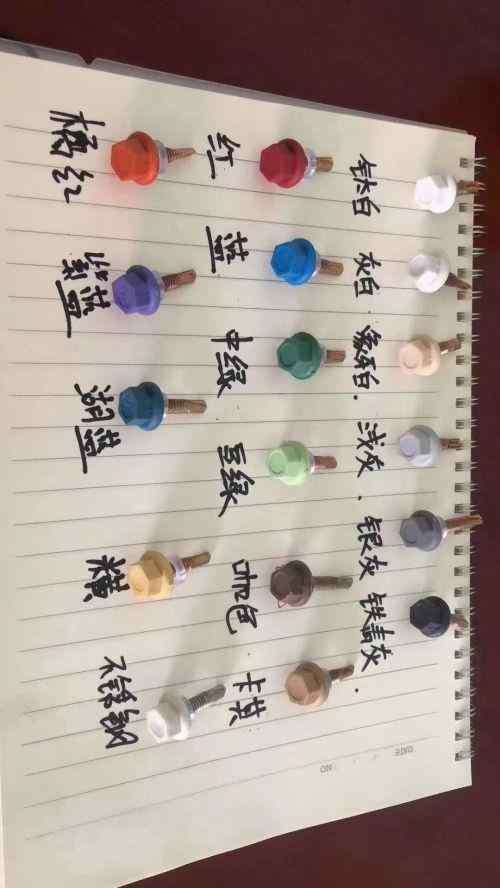 钛白 灰白. 象牙白. 浅灰. 银灰 铁蓝灰.
红 蓝 中绿 豆绿 咖色 卡其
橘红 湖蓝 米黄 不锈钢
DATE
NO